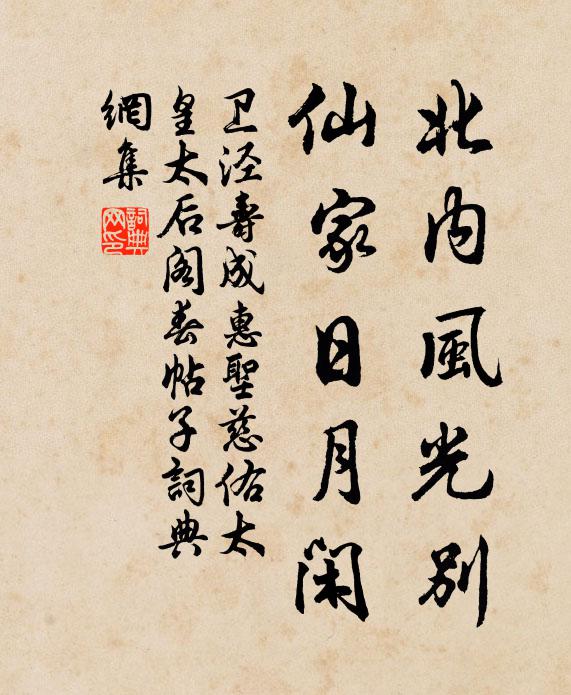 北内風光别
仙家日月閑
卫泾壽成惠聖慈佑太
皇太后阁春帖子詞典
網集
詞典网印